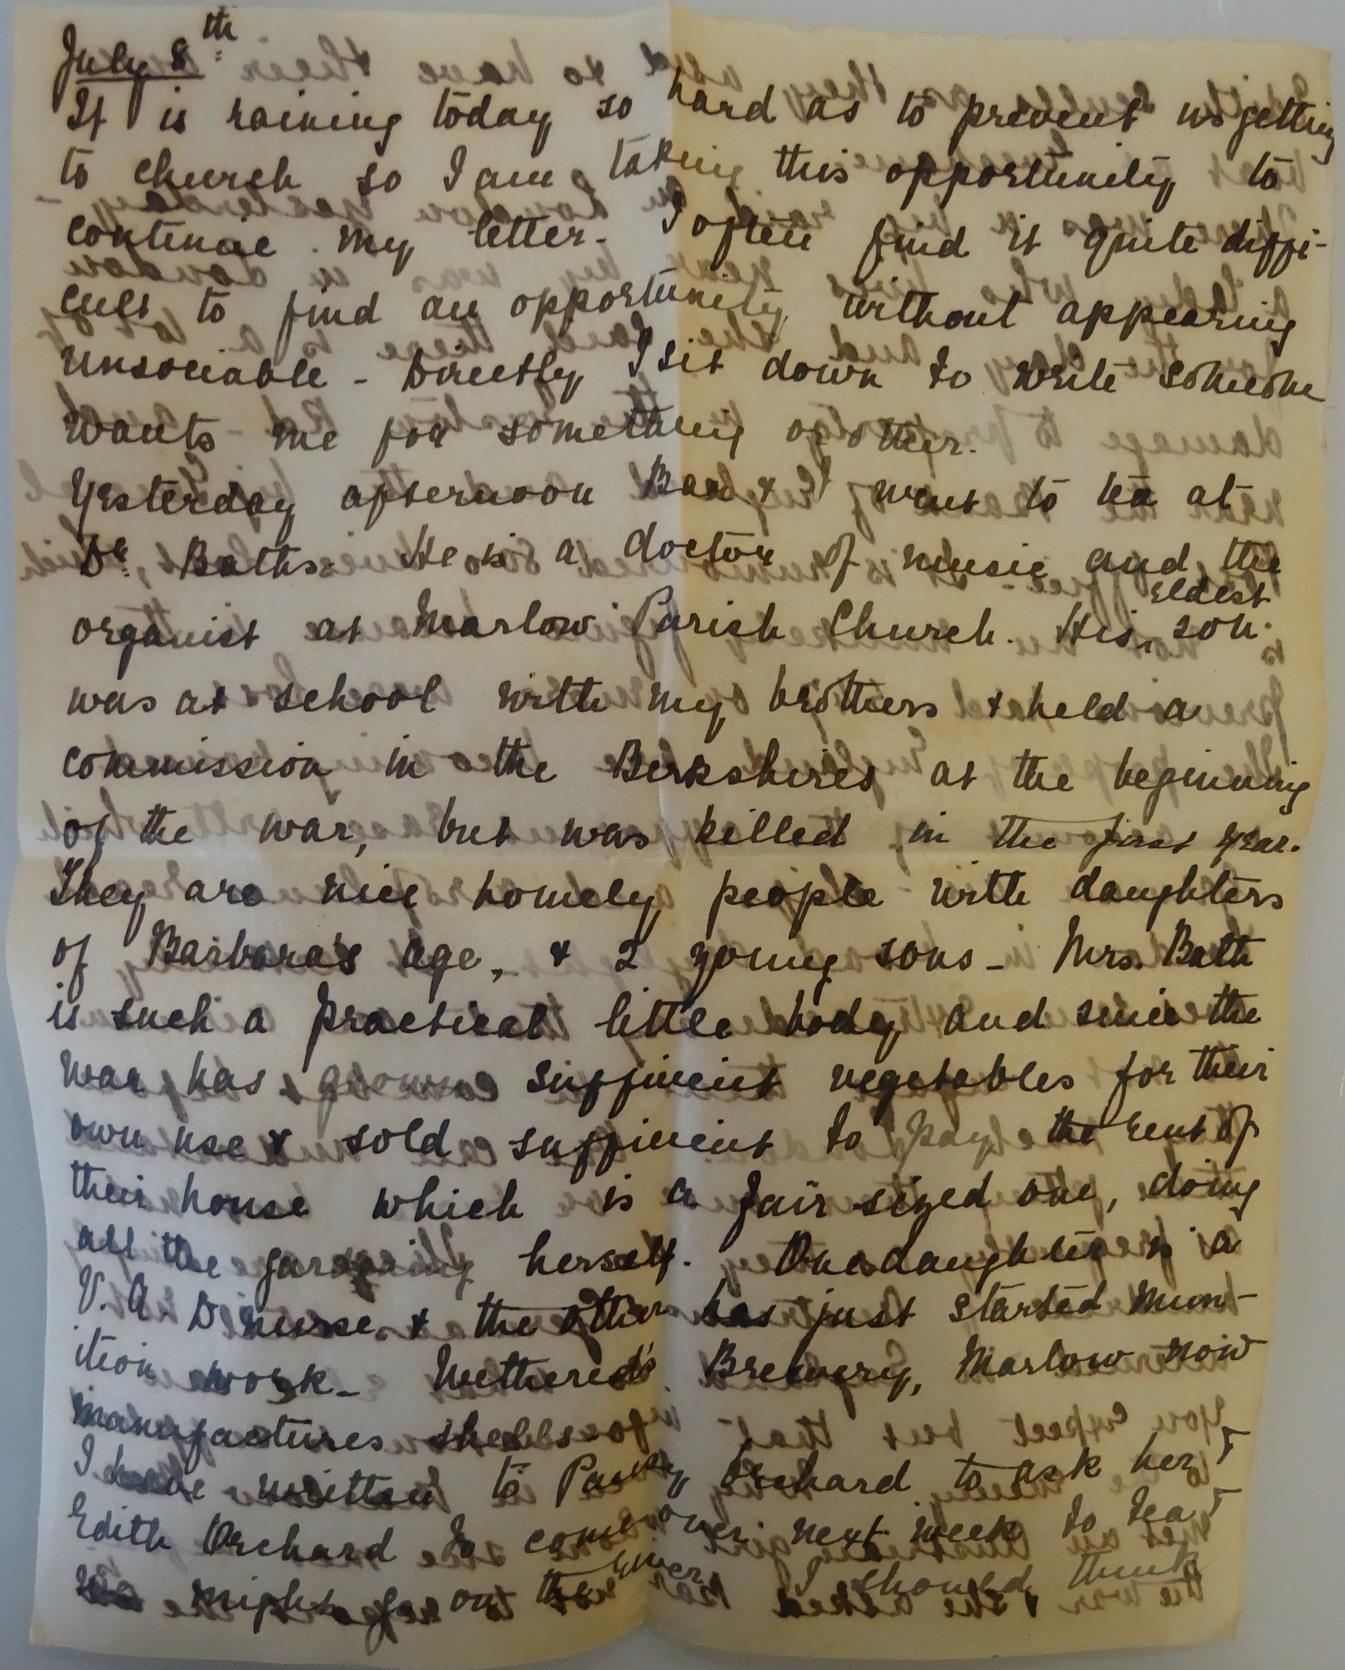 July 8th
It is raining today so hard as to prevent us getting
to church so I am taking this opportunity to
continue my letter - I often find it quite diffi-
cult to find an opportunity without appearing
unsociable - Directly I sit down to write someone
wants me for something or other.
Yesterday afternoon Bar & I went to tea at
Dr. Baths. He is a doctor of music and the
organist at Marlow Parish Church. His eldest son
was at school with my brothers & held a
commission in the Berkshires at the beginning
of the war, but was killed in the first year.
They are nice homely people with daughters
of Barbara's age, & 2 young sons - Mrs. Bath
is such a practical little body and since the
war has grown suffinient vegetables for their
own use & sold suffinient to pay the rent of
their house which is a fair sized one, doing
all the gardening herself. One daughter is a
V. A. D nurse & the other has just started mun-
ition work - Wethered's Brewery, Marlow now
manufactures shells
I have written to Orchard to ask her &
Edith Orchard to come over next week to tea &
we might go on the river I should think